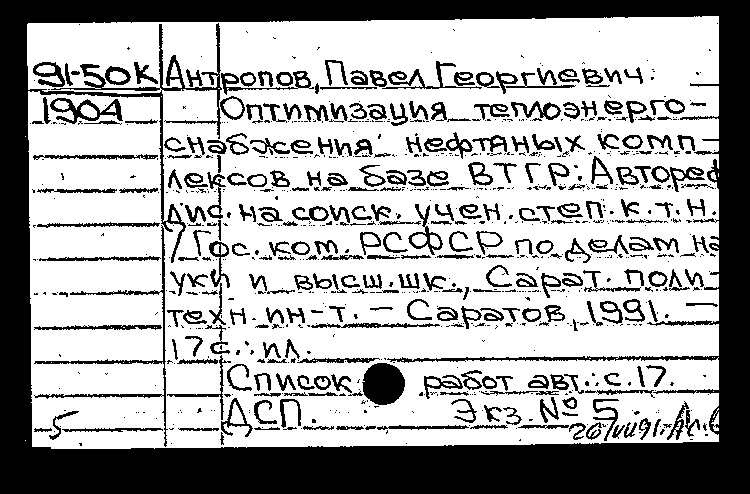 91-50К Антропов, Павел Георгиевич.
1904 Оптимизация теплоэнерго-
снабжения нефтяных комп-
лексов на базе ВТГР: Автореф
дис. на соиск. учен. степ. к.т.н.
/ Гос. ком. РСФСР по делам на
уки и высш. шк., Сарат. поли-
техн. ин-т. — Саратов, 1991. —
17 с.: ил.
Список работ авт.: с. 17.
ДСП. Экз. № 5.
5 26/VII91